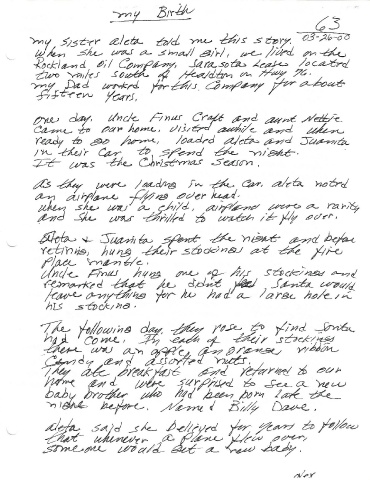 my Birth
63
03-26-00
my sister aleta told me this story.
when she was a small girl, we lived on the
Rockland Oil Company, Sarasota Lease located
two miles south of Healdton on Hwy 76.
my Dad worked for this Company for about
fifteen years.
one day, uncle Finus Craft and aunt Nettie
came to our home, visited awhile and when
ready to go home, loaded aleta and Juanita
in their car to spend the night.
It was the Christmas season.
as they were loading in the car, aleta noted
an airplane flying over head.
when she was a child, airplanes were a rarity
and she was thrilled to watch it fly over.
aleta & Juanita spent the night and before
retiring, hung their stockings at the fire
place mantle.
uncle Finus hung one of his stockings and
remarked that he didn't Santa would
leave anything for he had a large hole in
his stocking.
The following day, they rose to find Santa
had come. In each of their stockings
there was an apple, an orange, ribbon
candy and assorted nuts.
They ate breakfast and returned to our
home and were surprised to see a new
baby brother who had been born late the
night before. Named Billy Dave.
aleta said she believed for years to follow
that whenever a plane flew over,
someone would get a new baby.